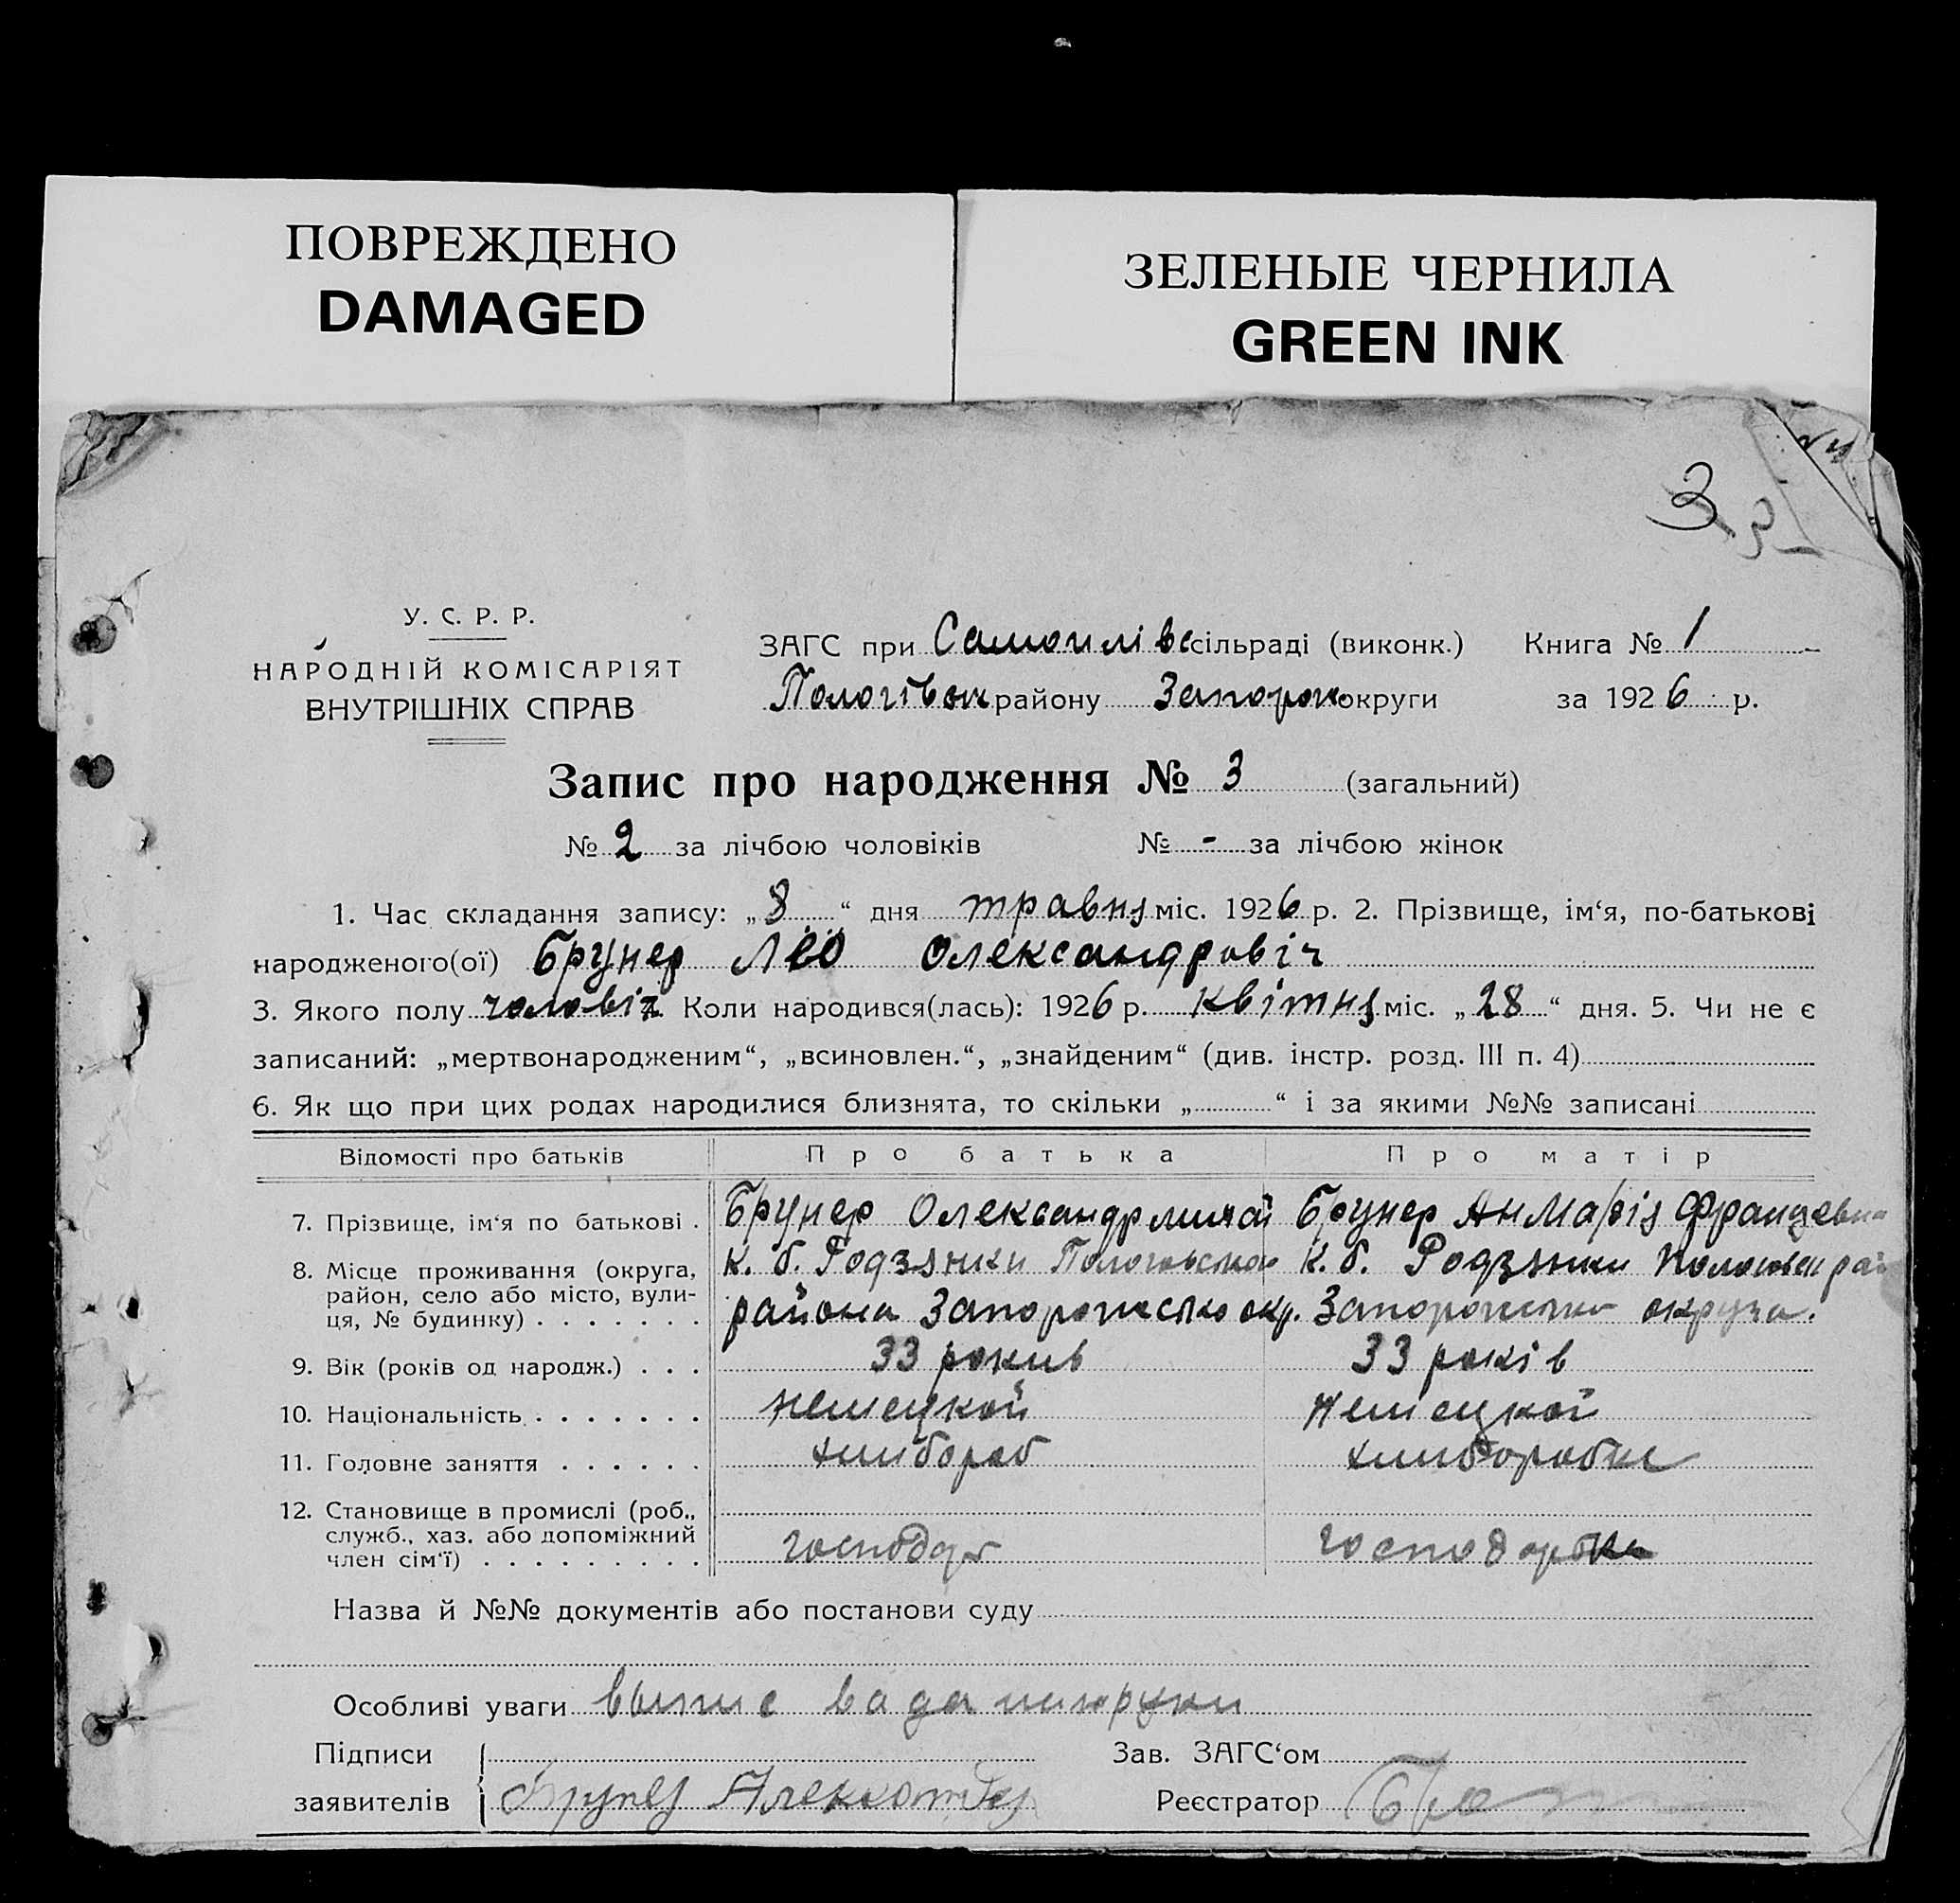 ПОВРЕЖДЕНО
DAMAGED
ЗЕЛЕНЫЕ ЧЕРНИЛА
GREEN INK
3
У. С. Р. Р.
НАРОДНІЙ КОМІСАРІЯТ
ВНУТРІШНІХ СПРАВ
ЗАГС при сільраді (виконк.) Книга № 1
району Запорож округи за 1926 р.
Запис про народження № 3 (загальний)
№ 2 за лічбою чоловіків № - за лічбою жінок
1. Час складання запису: „8“ дня травня міс. 1926 р. 2. Прізвище, ім‘я, по-батькові
народженого(ої) Брунер Лео Олександровіч
3. Якого полу чоловіч. Коли народився(лась): 1926 р. квітня міс. „28“ дня. 5. Чи не є
записаний: „мертвонародженим“, „всиновлен.“, „знайденим“ (див. інстр. розд. III п. 4)
6. Як що при цих родах народилися близнята, то скільки „ “ і за якими №№ записані
Відомості про батьків Про батька Про матір
7. Прізвище, ім‘я по батькові . Брунер Олександр Брунер АнМарія Францевна
8. Місце проживання (округа, К. б. Родзянки К. б. Родзянки
район, село або місто, вули- района Запорожско окр. Запорожско округа.
ця, № будинку) . . . . . . .
9. Вік (років од народж.) . . . 33 рокив 33 років
10. Національність . . . . . . . немецкой немецкой
11. Головне заняття . . . . . . хлибороб хлиборобка
12. Становище в промислі (роб.,
служб., хаз. або допоміжний господар господарка
член сім‘ї) . . . . . . . . .
Назва й №№ документів або постанови суду
Особливі уваги
Підписи Зав. ЗАГС‘ом
заявителів Брунер Реєстратор